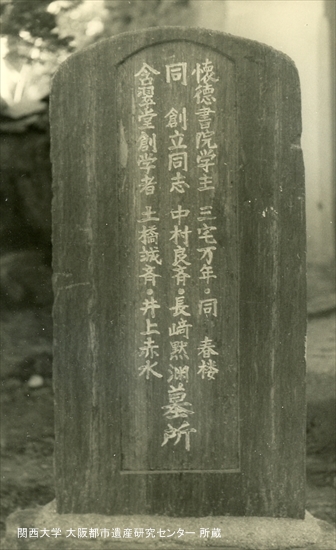 懐徳書院学主 三宅万年・同 春楼
同 創立同志 中村良斉・長﨑黙淵
含翠堂創学者 土橋誠斉・井上赤水
墓所
関西大学 大阪都市遺産研究センター 所蔵